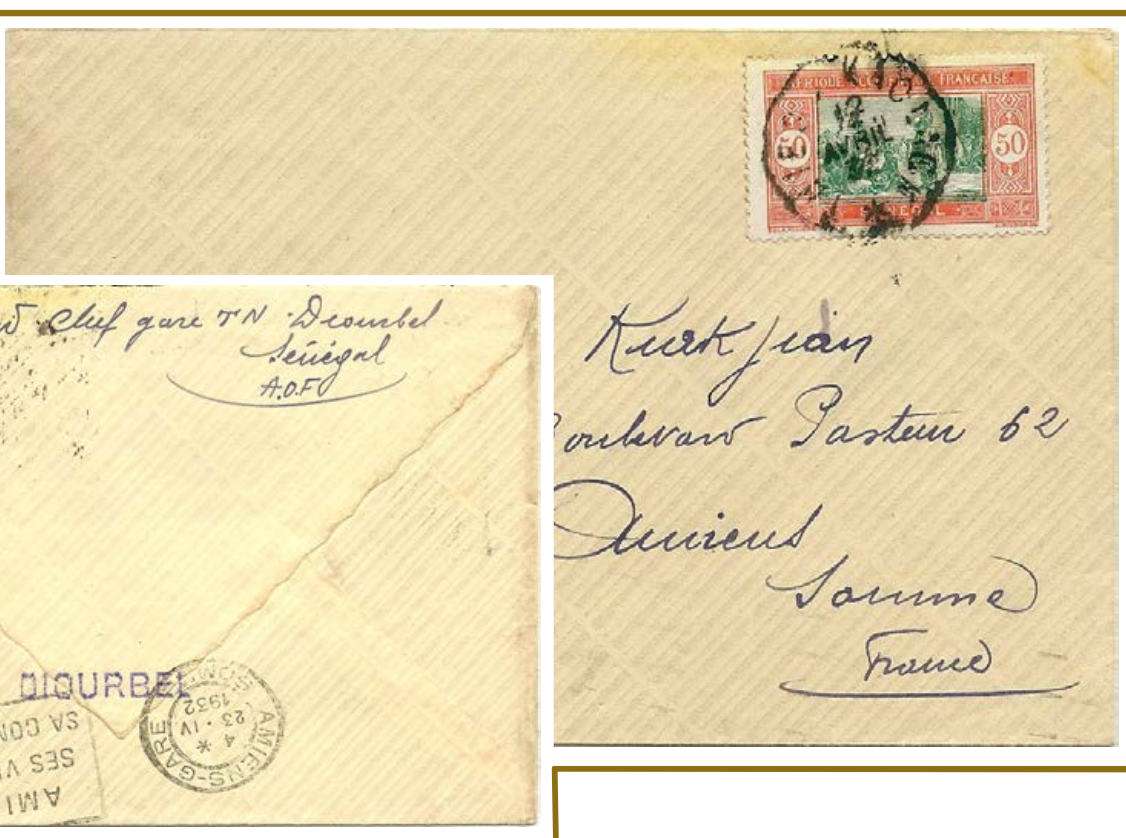 AFRIQUE OCCID FRANÇAISE
50 50
SÉNÉGAL
12
AVRIL
Kurkjian
Boulevard Pasteur 62
Amiens
Somme
France
Chef gare TN Diourbel
Sénégal
A.O.F
DIOURBEL
AMIENS-GARE
SOMME
4 *
23 · IV
1932
AMI
SES VI
SA CON